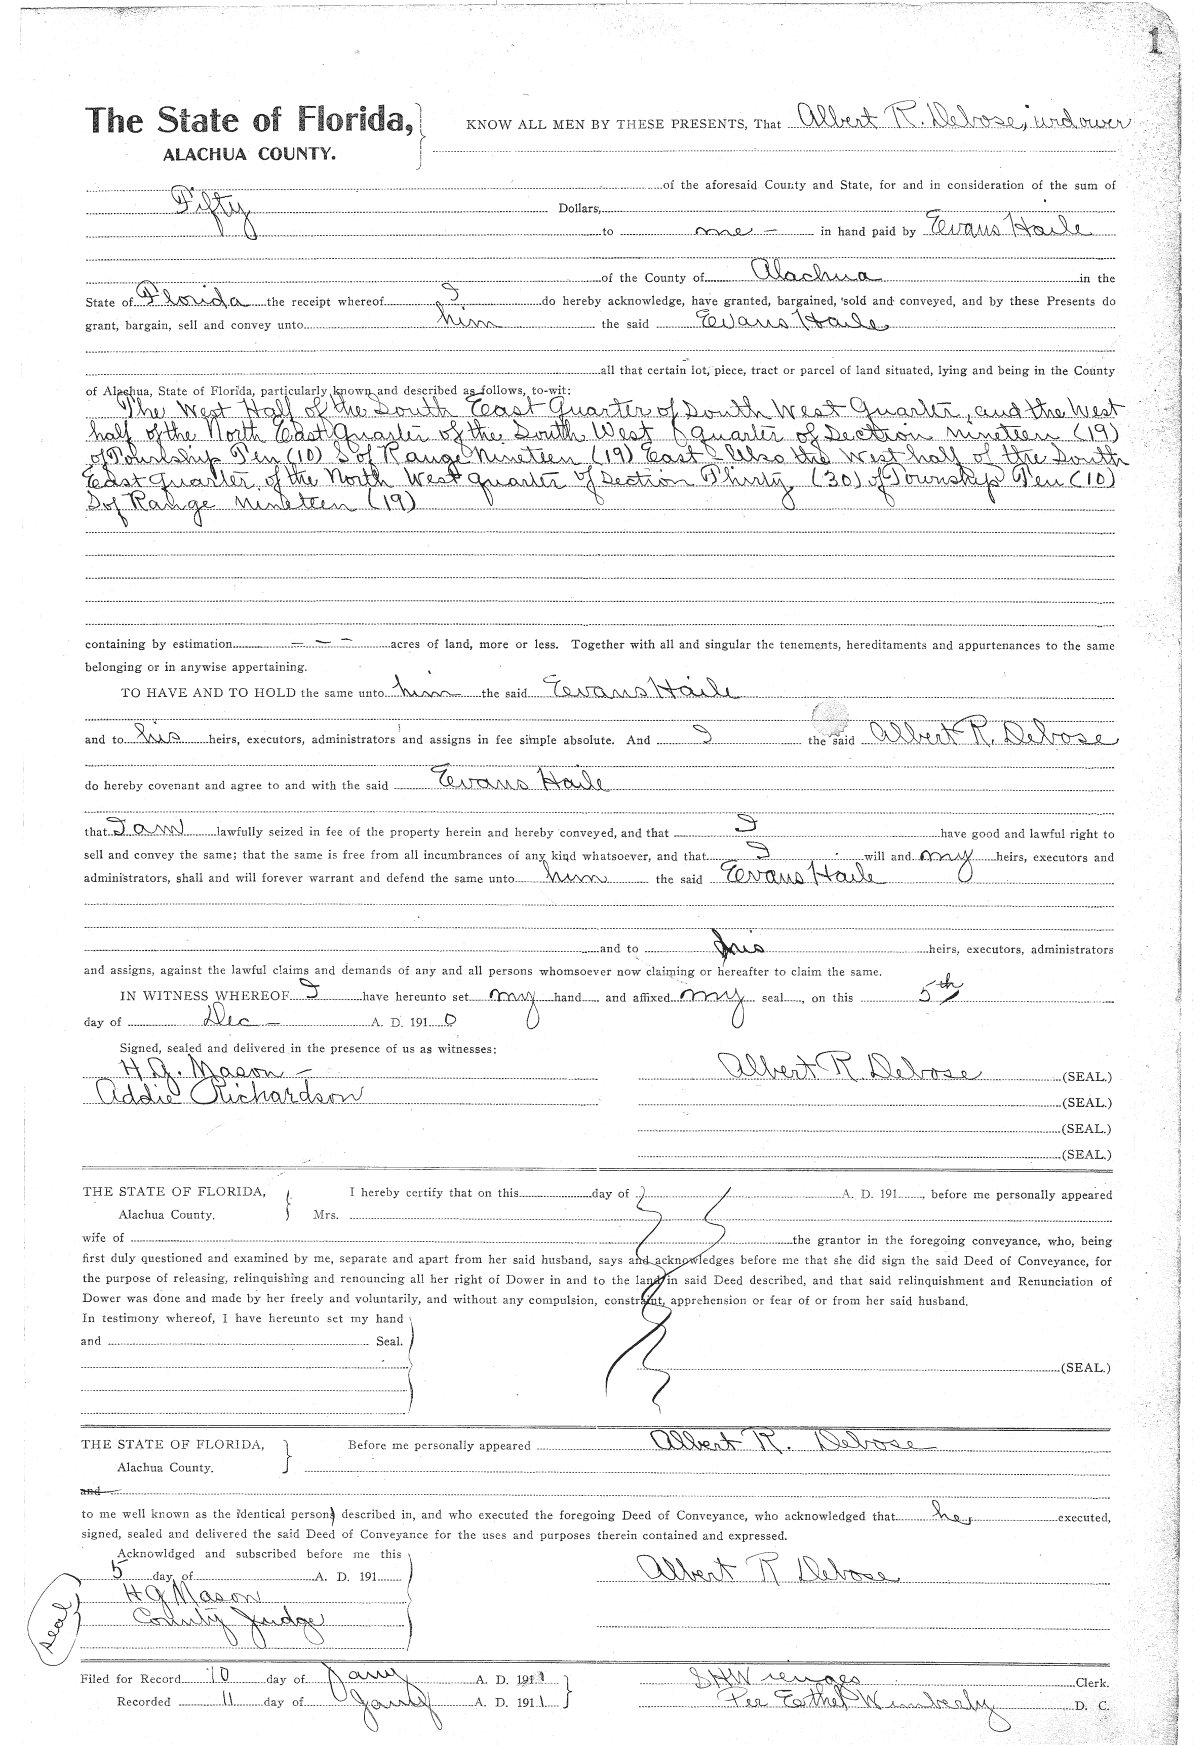 1
The State of Florida, KNOW ALL MEN BY THESE PRESENTS, That Albert R. Debose, widower
ALACHUA COUNTY.
of the aforesaid County and State, for and in consideration of the sum of
Fifty Dollars,
to me - in hand paid by Evans Haile
of the County of Alachua in the
State of Florida the receipt whereof I do hereby acknowledge, have granted, bargained, sold and conveyed, and by these Presents do
grant, bargain, sell and convey unto him the said Evans Haile
all that certain lot, piece, tract or parcel of land situated, lying and being in the County
of Alachua, State of Florida, particularly known and described as follows, to-wit:
The West Half of the South East Quarter of South West Quarter, and the West
half of the North East Quarter of the South West quarter of Section nineteen (19)
of Township Ten (10) S of Range Nineteen (19) East - Also the West half of the South
East quarter of the North West quarter of Section Thirty (30) of Township Ten (10)
S of Range nineteen (19)
containing by estimation - - - acres of land, more or less. Together with all and singular the tenements, hereditaments and appurtenances to the same
belonging or in anywise appertaining.
TO HAVE AND TO HOLD the same unto him the said Evans Haile
and to his heirs, executors, administrators and assigns in fee simple absolute. And I the said Albert R. Debose
do hereby covenant and agree to and with the said Evans Haile
that I am lawfully seized in fee of the property herein and hereby conveyed, and that I have good and lawful right to
sell and convey the same; that the same is free from all incumbrances of any kind whatsoever, and that I will and my heirs, executors and
administrators, shall and will forever warrant and defend the same unto him the said Evans Haile
and to his heirs, executors, administrators
and assigns, against the lawful claims and demands of any and all persons whomsoever now claiming or hereafter to claim the same.
IN WITNESS WHEREOF I have hereunto set my hand and affixed my seal, on this 5th
day of Dec - A. D. 1910
Signed, sealed and delivered in the presence of us as witnesses:
H. G. Mason - Albert R Debose (SEAL.)
Addie Richardson (SEAL.)
(SEAL.)
(SEAL.)
THE STATE OF FLORIDA, I hereby certify that on this day of A. D. 191, before me personally appeared
Alachua County. Mrs.
wife of the grantor in the foregoing conveyance, who, being
first duly questioned and examined by me, separate and apart from her said husband, says and acknowledges before me that she did sign the said Deed of Conveyance, for
the purpose of releasing, relinquishing and renouncing all her right of Dower in and to the land in said Deed described, and that said relinquishment and Renunciation of
Dower was done and made by her freely and voluntarily, and without any compulsion, constraint, apprehension or fear of or from her said husband.
In testimony whereof, I have hereunto set my hand
and Seal.
(SEAL.)
THE STATE OF FLORIDA, Before me personally appeared Albert R. Debose
Alachua County.
and
to me well known as the identical person described in, and who executed the foregoing Deed of Conveyance, who acknowledged that he, executed,
signed, sealed and delivered the said Deed of Conveyance for the uses and purposes therein contained and expressed.
Acknowldged and subscribed before me this
5 day of A. D. 191 Albert R Debose
H G Mason
County Judge
Seal
Filed for Record 10 day of Jany A. D. 1911 S H Wienges Clerk.
Recorded 11 day of Jany A. D. 1911 Per Esthel Wimberly D. C.